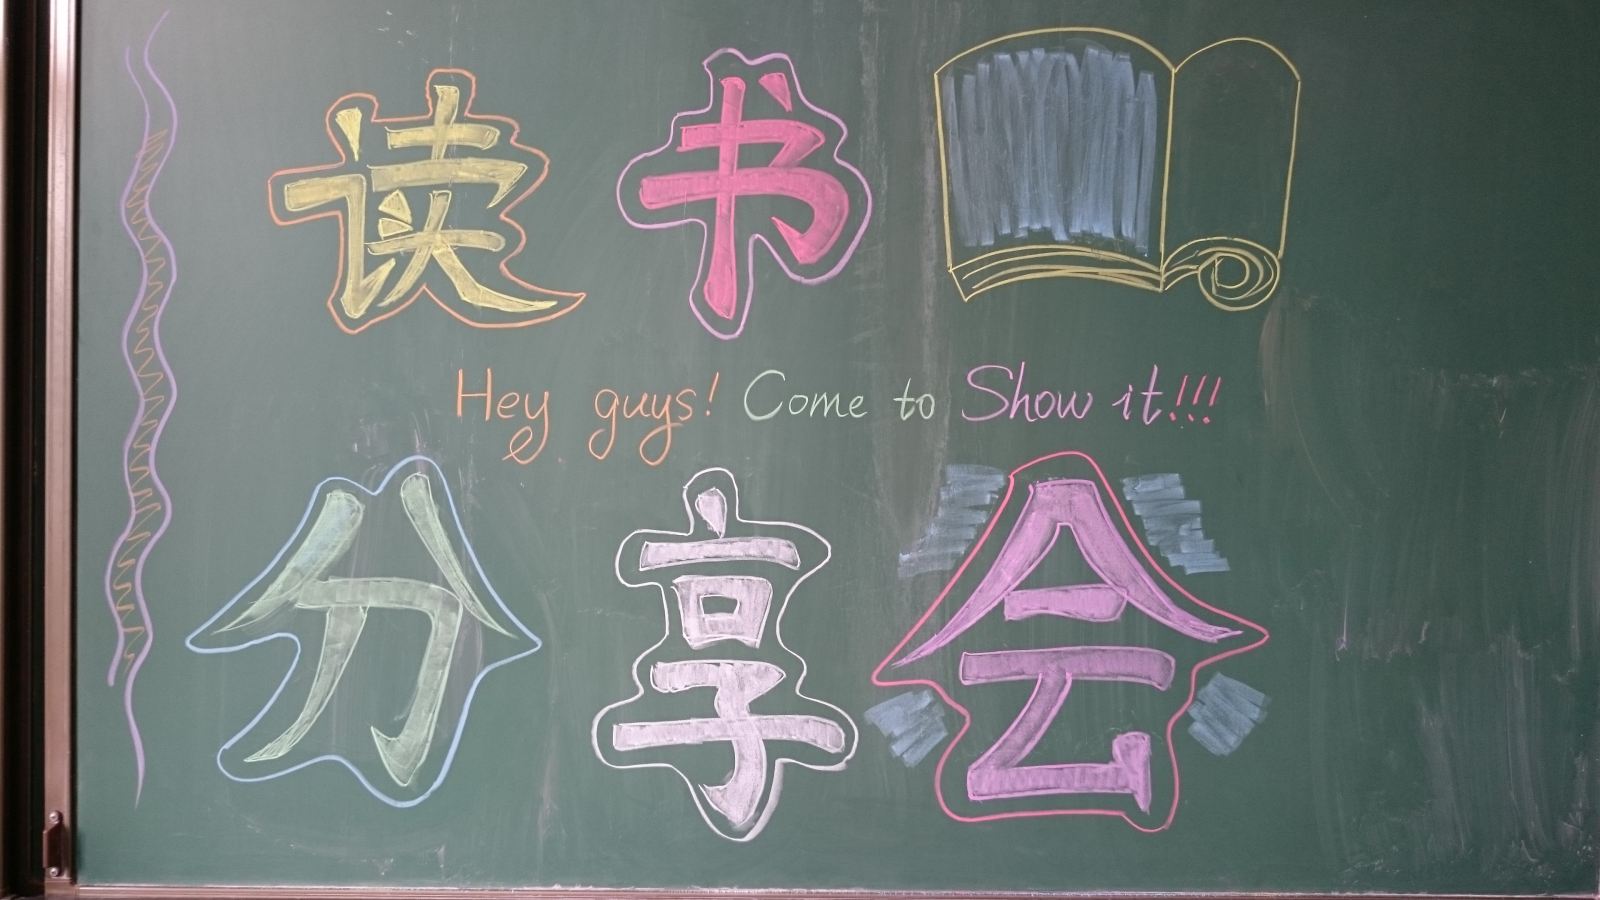 读书
Hey guys! Come to Show it!!!
分享会